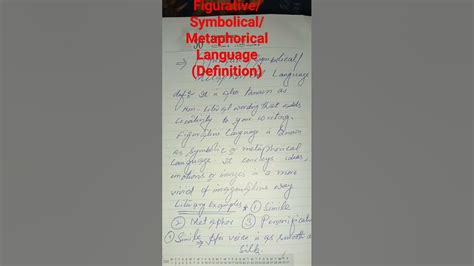 Figurative/
Symbolical/
Metaphorical
Language
(Definition)
Symbolical/
Language
def:- It is also known as
Non-literal wording that adds
creativity to your writing.
Figurative language is known
as symbolic or metaphorical
language. It conveys ideas,
emotions or images in a more
vivid & imaginative way
Literary Examples ① Simile
② Metaphor ③ Personification
① Simile voice is as smooth as
Silk.